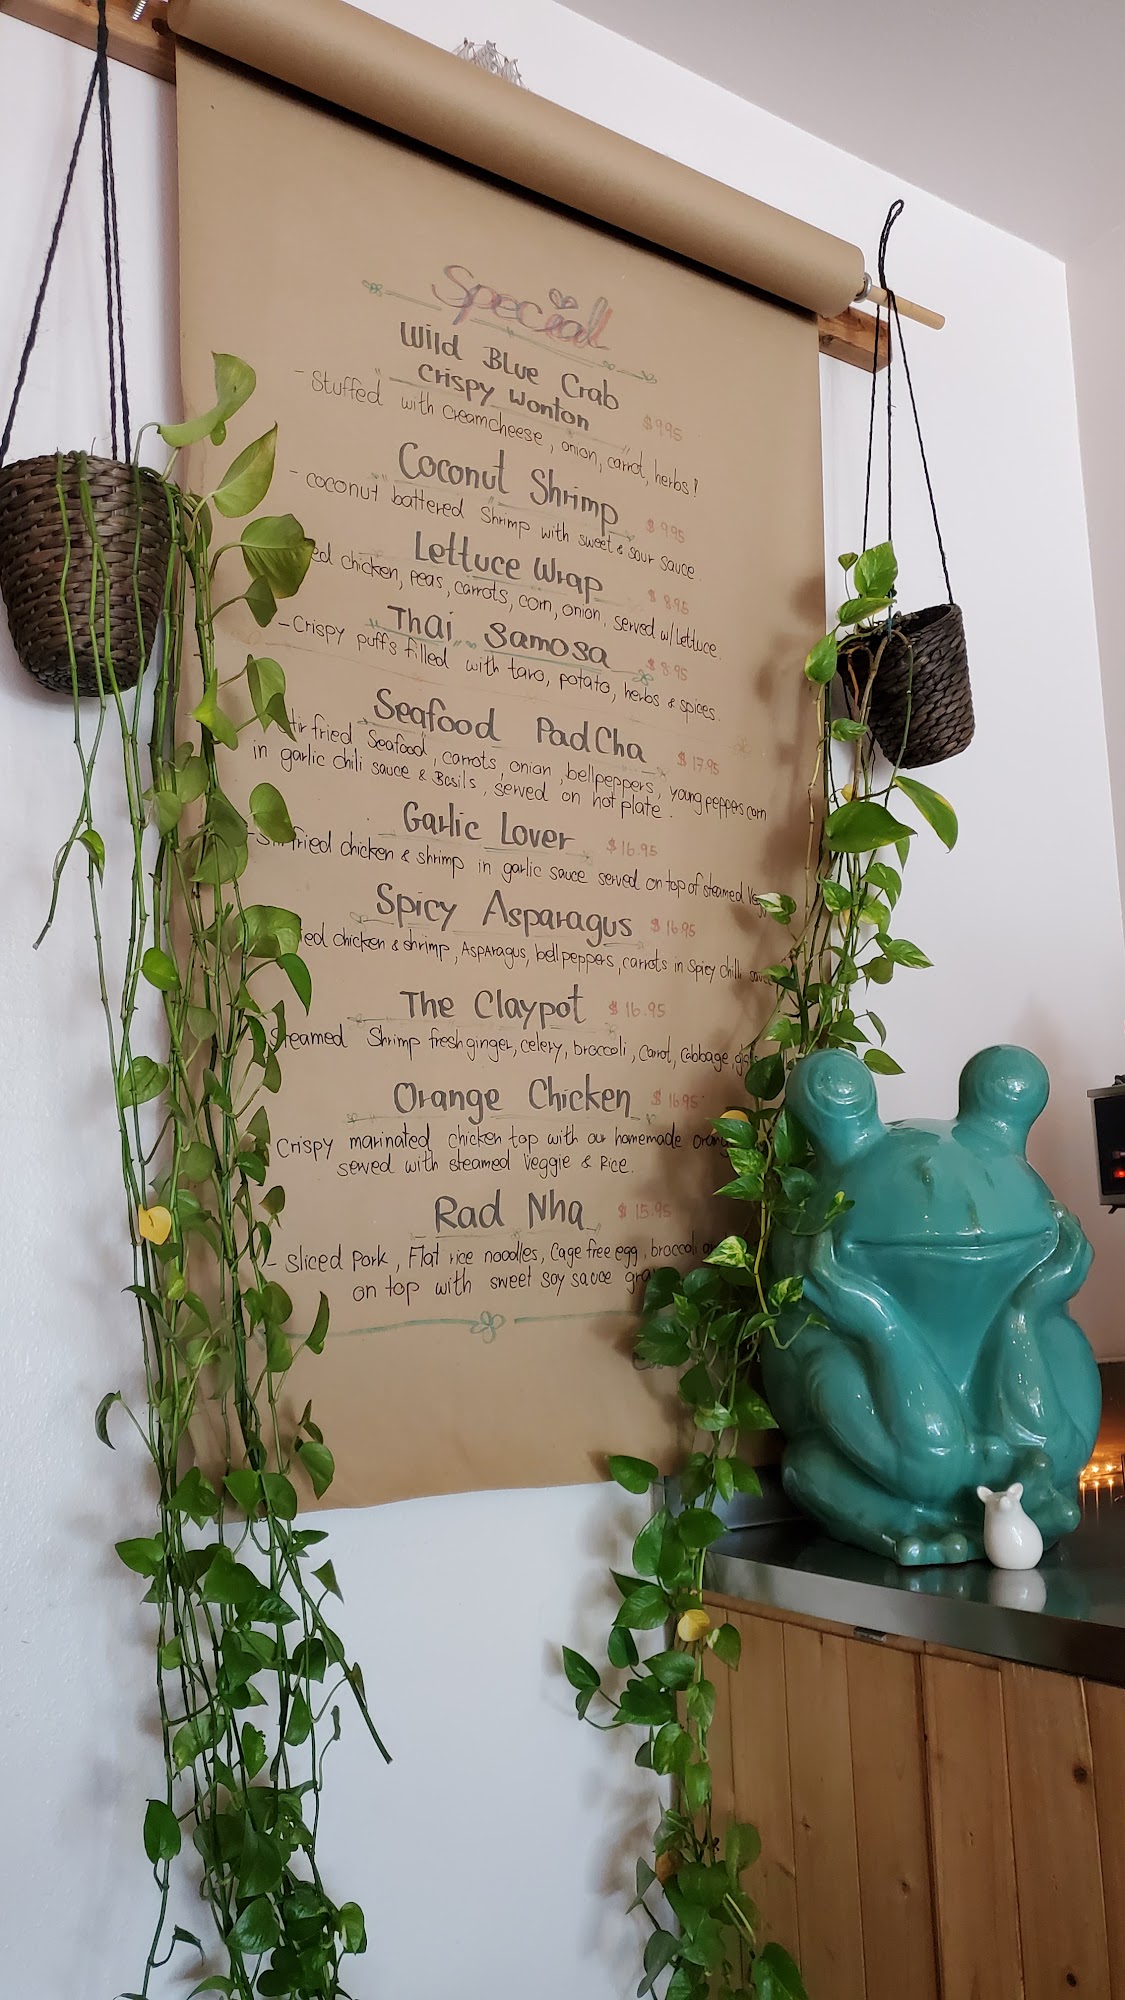 Special
Wild Blue Crab
"Crispy Wonton" $9.95
- Stuffed with creamcheese, onion, carrot, herbs!
"Coconut Shrimp" $9.95
- coconut battered Shrimp with sweet & sour sauce.
Lettuce Wrap $8.95
chicken, peas, carrots, corn, onion, served w/ Lettuce.
"Thai Samosa" $8.95
- Crispy puffs filled with taro, potato, herbs & spices.
Seafood Pad Cha $17.95
fried Seafood, carrots, onion, bellpeppers, young peppers corn
in garlic chili sauce & Basils, served on hot plate.
Garlic Lover $16.95
fried chicken & shrimp in garlic sauce served on top of steamed
Spicy Asparagus $16.95
chicken & shrimp, Asparagus, bellpeppers, carrots in Spicy chili sauce
The Claypot $16.95
- Steamed Shrimp fresh ginger, celery, broccoli, carrot, cabbage,
Orange Chicken $16.95
Crispy marinated chicken top with our homemade orange
served with steamed Veggie & Rice.
Rad Nha $15.95
- Sliced Pork, Flat rice noodles, Cage free egg, broccoli
on top with sweet soy sauce